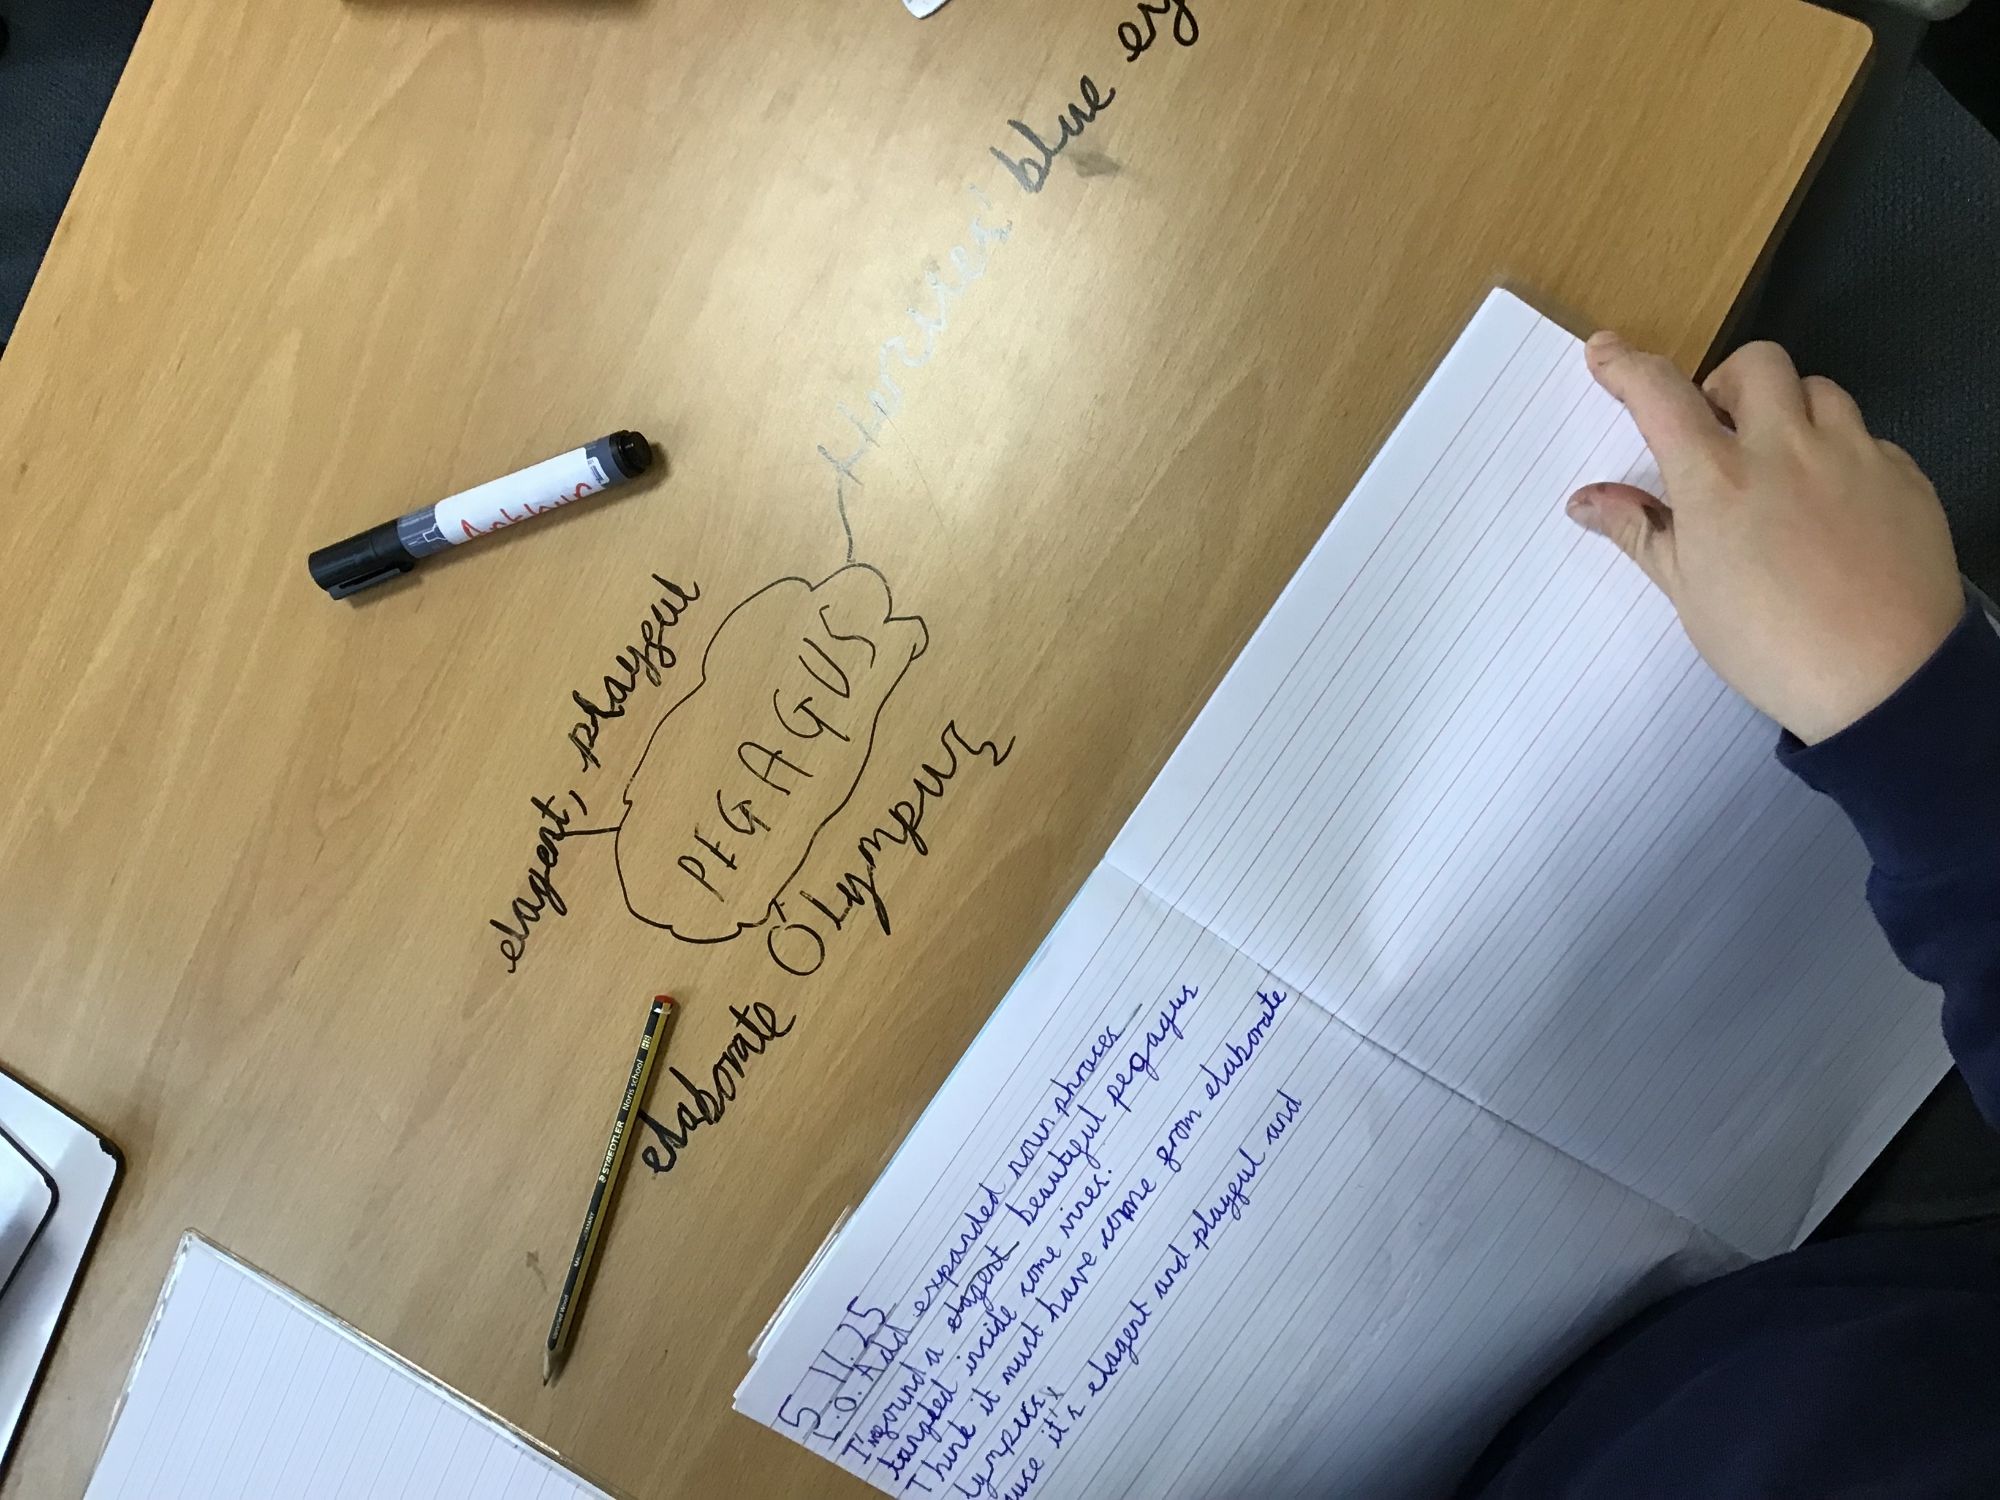 blue
elagent, playful
PEGAGUS
elaborate Olympus
Arthur
STAEDTLER Noris school HB
5.11.25
L.O. Add expanded noun phrases
I've found a elagent beautyful pegagus
tangled inside some vines.
Think it must have come from elaborate
lympuss
use it's elagent and playful and